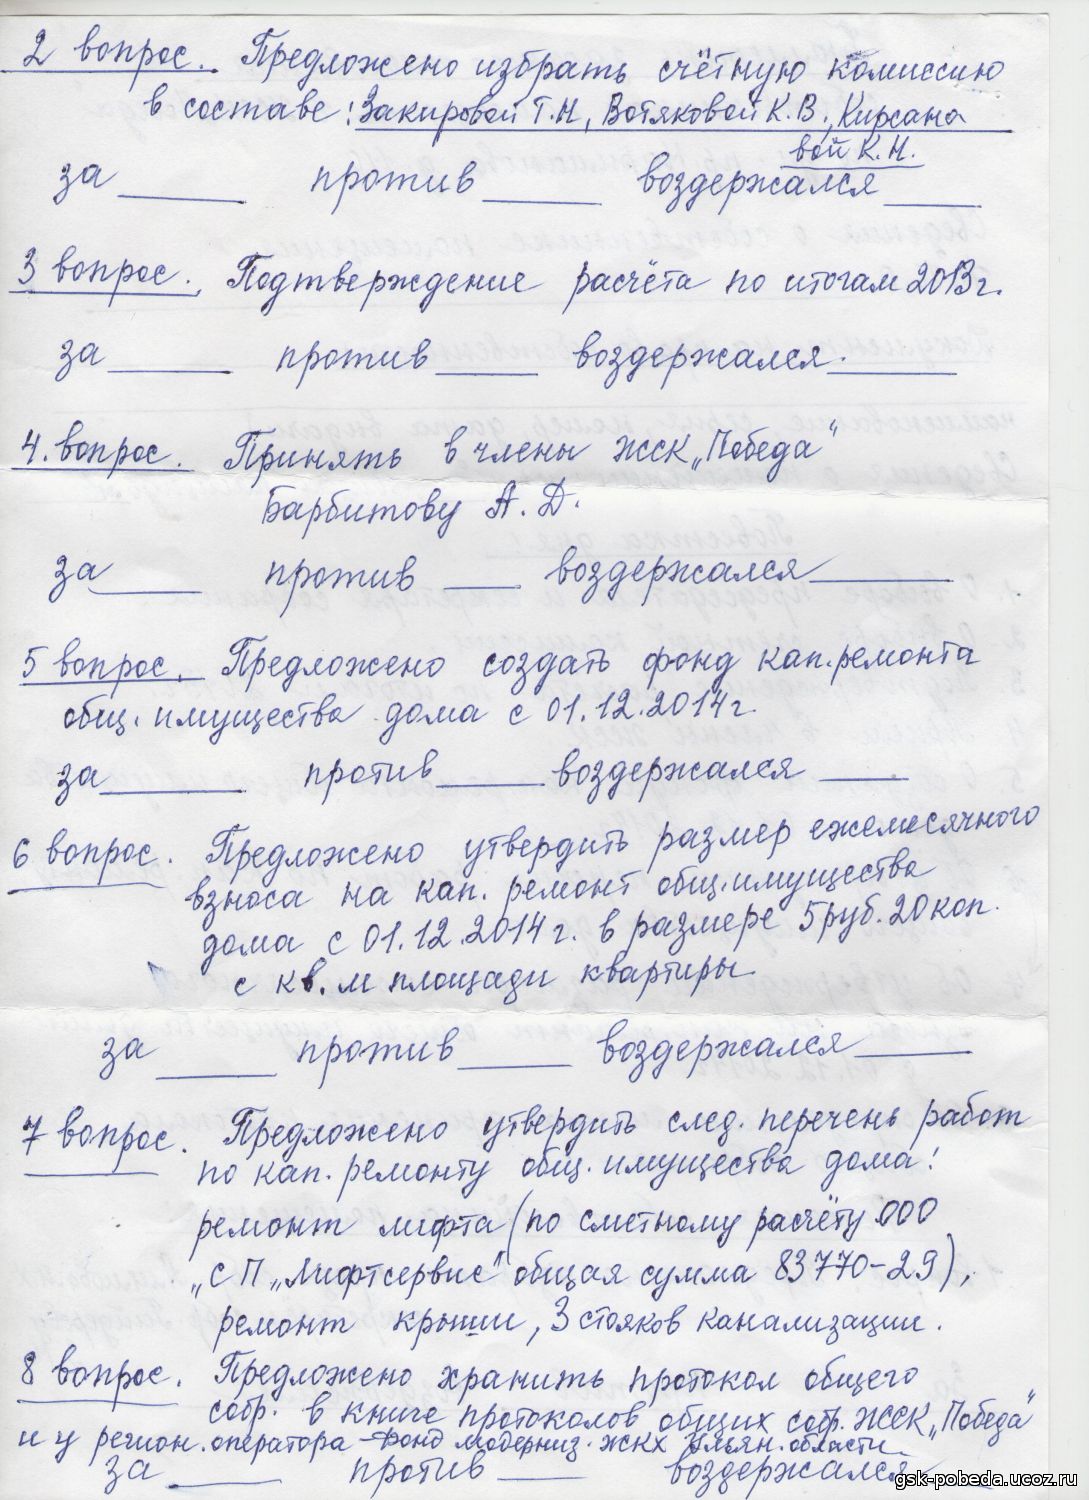 2 вопрос. Предложено избрать счётную комиссию
в составе: Закировой Т.Н, Вотяковой К.В., Кирсано
вой К.Н.
за ____ против ____ воздержался ____
3 вопрос. Подтверждение расчёта по итогам 2013 г.
за ____ против ____ воздержался ____
4. вопрос. Принять в члены ЖСК „Победа"
Барбитову А. Д.
за ____ против ____ воздержался ____
5 вопрос. Предложено создать фонд кап. ремонта
общ. имущества дома с 01.12.2014 г.
за ____ против ____ воздержался ____
6 вопрос. Предложено утвердить размер ежемесячного
взноса на кап. ремонт общ. имущества
дома с 01.12.2014 г. в размере 5 руб. 20 коп.
с кв. м площади квартиры
за ____ против ____ воздержался ____
7 вопрос. Предложено утвердить след. перечень работ
по кап. ремонту общ. имущества дома:
ремонт лифта (по сметному расчёту ООО
„СП „Лифтсервис" общая сумма 83770-29),
ремонт крыши, 3 стояков канализации.
8 вопрос. Предложено хранить протокол общего
собр. в книге протоколов общих собр. ЖСК „Победа"
и у регион. оператора - Фонд модерниз. ЖКХ Ульян. области
за ____ против ____ воздержался ____
gsk-pobeda.ucoz.ru